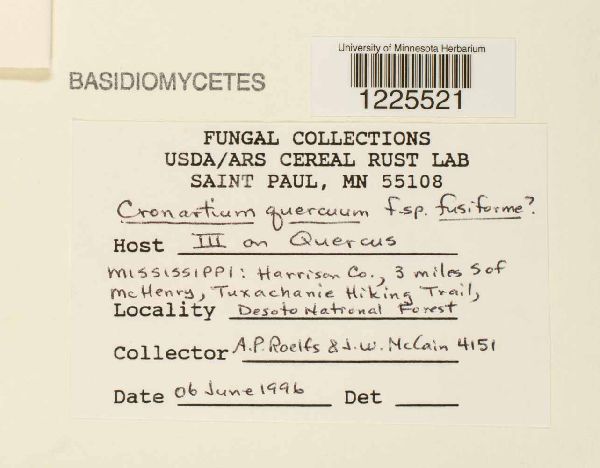 University of Minnesota Herbarium
1225521
BASIDIOMYCETES
FUNGAL COLLECTIONS
USDA/ARS CEREAL RUST LAB
SAINT PAUL, MN 55108
Cronartium quercuum f.sp. fusiforme?
Host III on Quercus
MISSISSIPPI: Harrison Co., 3 miles S of
McHenry, Tuxachanie Hiking Trail,
Locality Desoto National Forest
Collector A.P. Roelfs & J.W. McCain 4151
Date 06 June 1996 Det